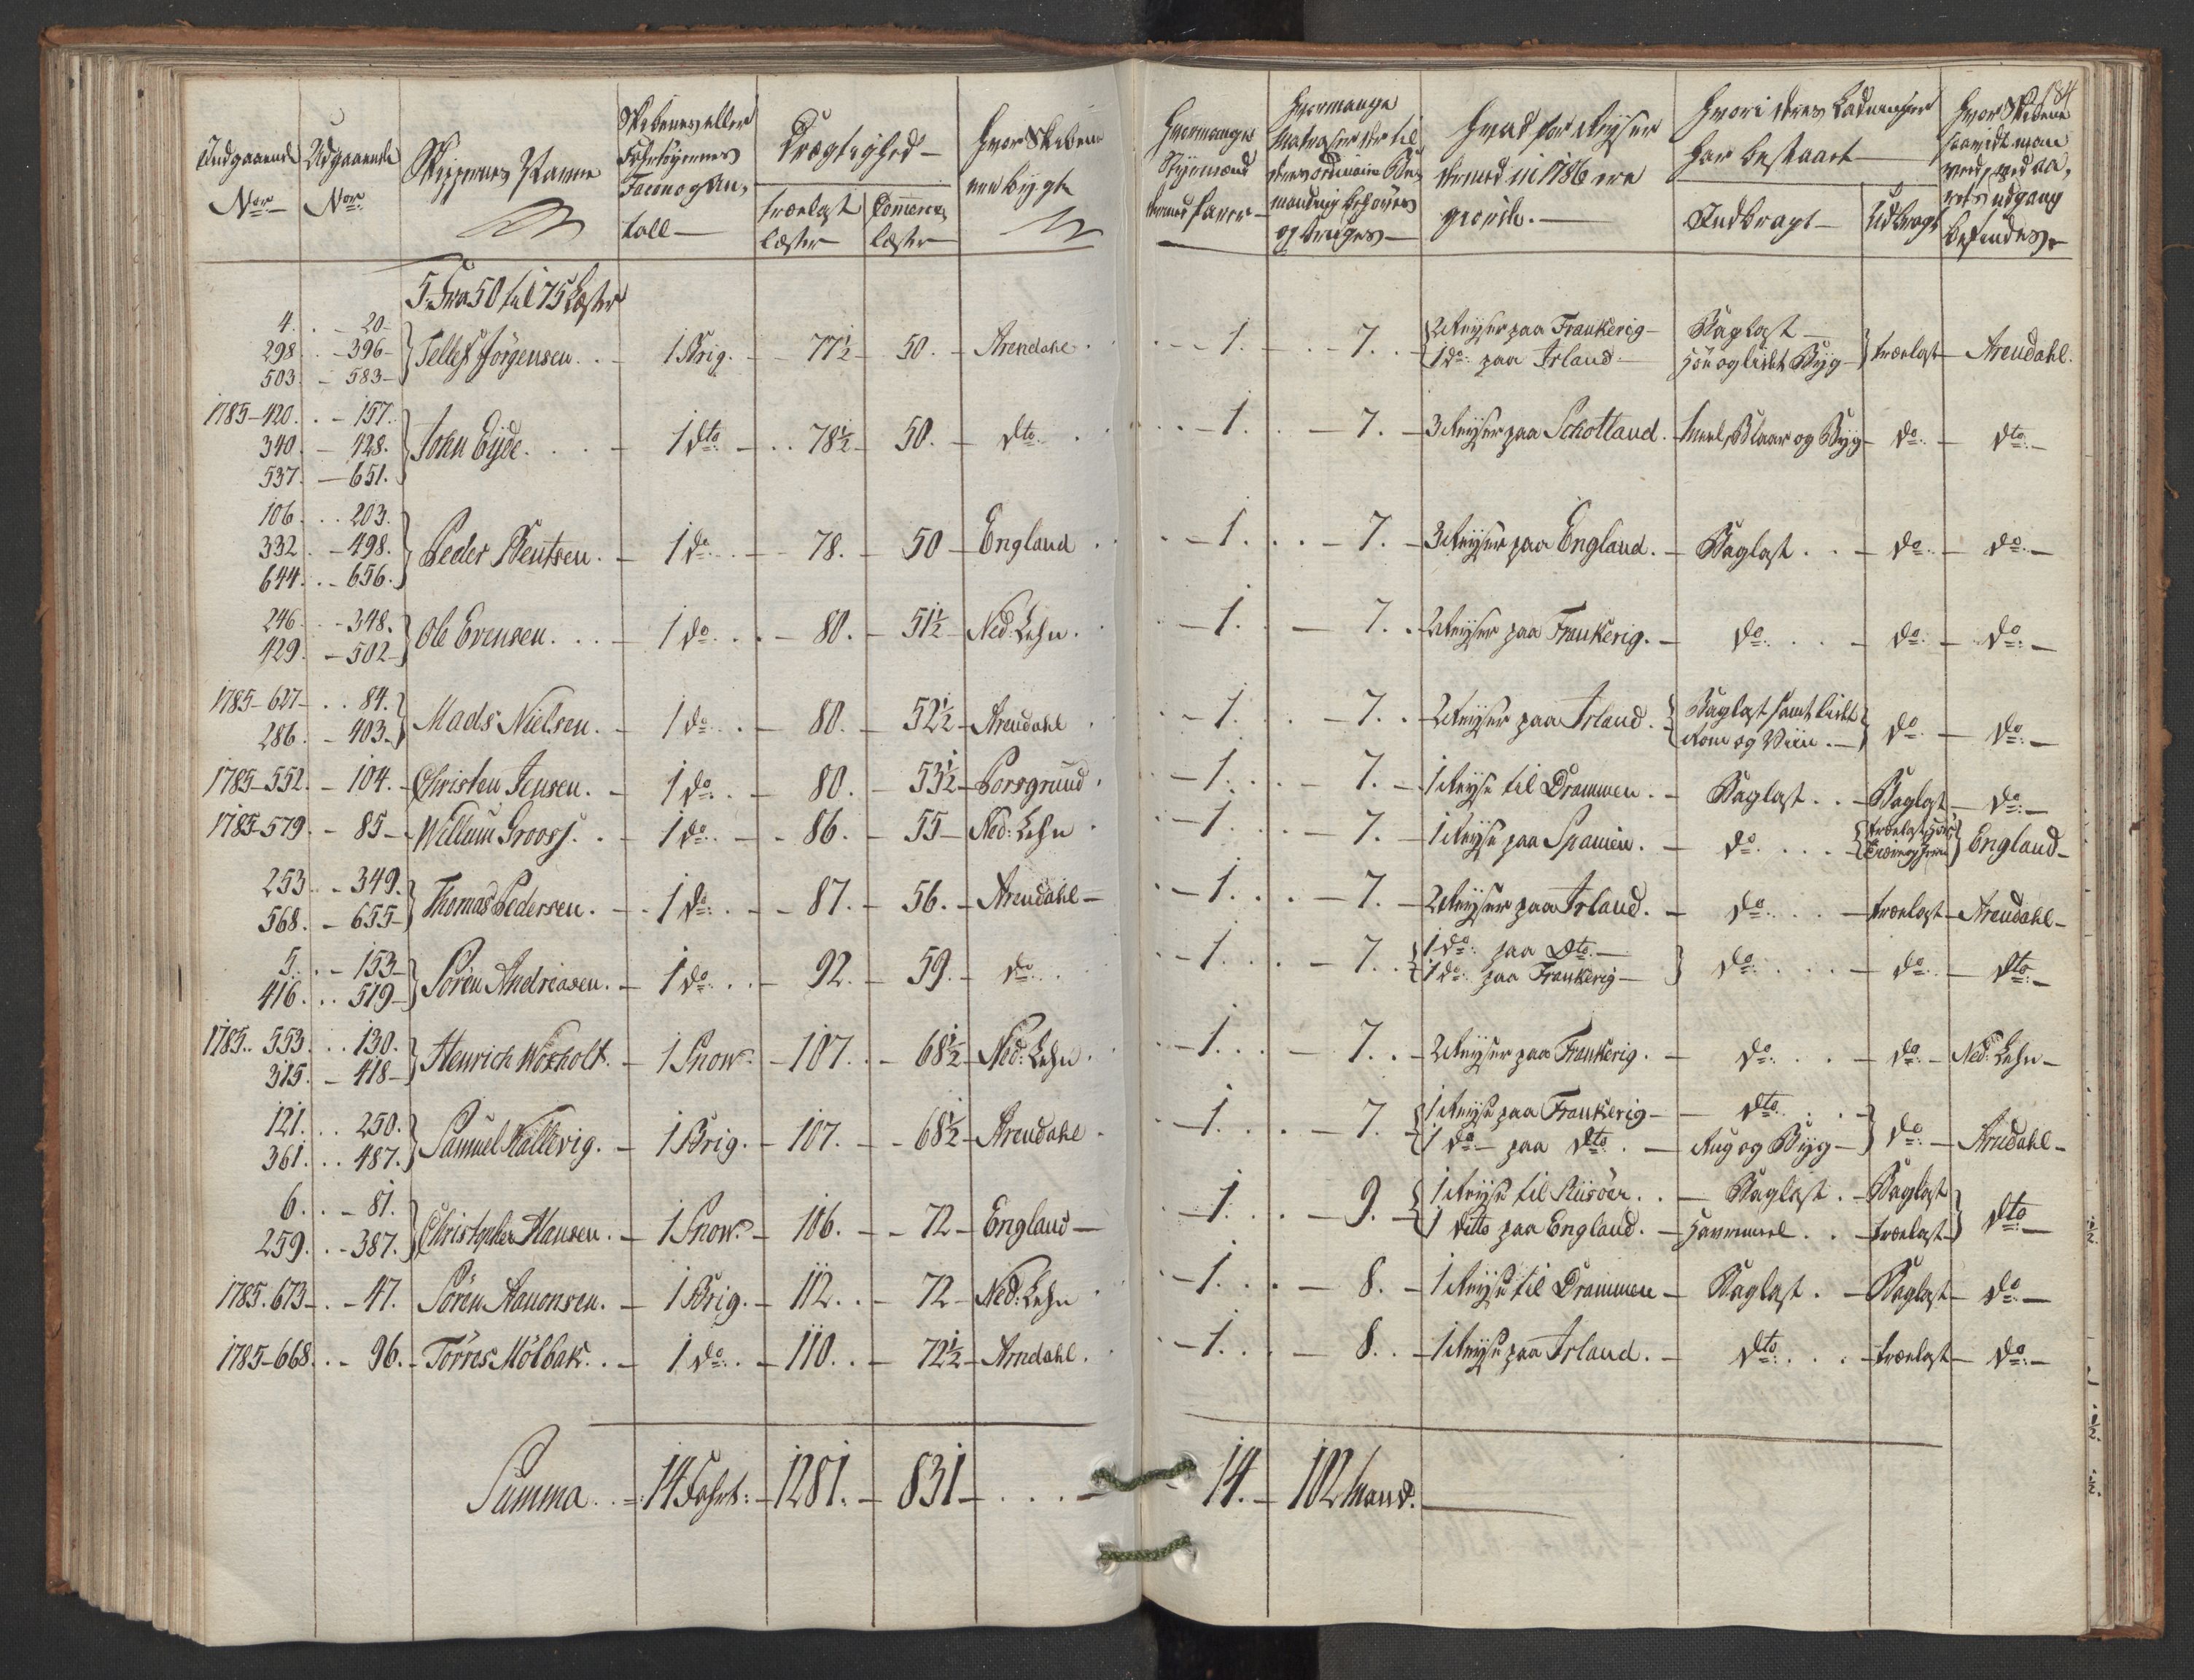 184
Indgaaende Nor: Udgaaende Nor: Skippernes Navne Skibenes eller Fahrtöyernes Facon og Antall Drægtighed Trælast læster Commerce læster Hvor Skibene ere bygte Hvormange Styrmænd dermed farer Hvormange Matroser der til deres ordinaire Bemanding behöves og bruges Hvad for Reyser dermed in 1786 ere giorte. Hvori deres Ladninger har bestaaet Indbragt Udbragt Hvor Skibene saavidt man veed, ved aarets udgang befindes
5. Fra 50 til 75 Læster
4. 20
298 396 Tellef Jörgensen. 1 Brig. 77½ 50. Arendahl 1. 7. 2 Reyser paa Frankerig Baglast
503. 583 1 do: paa Irland Hör og lidet Byg Trælast Arendahl.
1785-420. 157.
340. 428. John Eyde. 1 dto 78½ 50. dto. 1. 7. 3 Reyser paa Schotland. Meel, Blaar og Byg do: dto:
537. 651.
106. 203.
332. 498. Peder Bentsen. 1 do 78. 50 England 1. 7. 3 Reyser paa England. Baglast do: do:
644. 656.
246. 348.
429. 502 Ole Evensen. 1 do 80. 51½ Ned: Lehn. 1. 7. 2 Reyser paa Frankerig. do: do: do:
1785-627 84.
286. 403. Mads Nielsen. 1 do 80. 52½ Arendahl 1. 7. 2 Reyser paa Irland. Baglast samt lidet Rom og Viin. do do:
1785-552. 104. Christen Jensen. 1 do 80. 53½ Porsgrund 1. 7. 1 Reyse til Drammen. Baglast Baglast do:
1785-579. 85 Willum Grooss. 1 do 86. 55 Ned: Lehn 1. 7. 1 Reyse paa Spanien. do. Trælast England
253. 349.
568. 655 Thomas Pedersen. 1 do: 87. 56. Arendahl 1. 7. 2 Reyser paa Irland. do: Trælast Arendahl
5. 153 1 do: paa Dto.
416. 519 Sören Andreasen. 1 do 92. 59. do 1. 7. 1 do: paa Frankerig do: do: dto:
1785. 553. 130.
315. 418 Henrich Woxholt. 1 Snow 107. 68½ Ned: Lehn. 1. 7. 2 Reyser paa Frankerig. do: do: Ned: Lehn
121. 250. 1 Reyse paa Frankerig dto
361. 487. Samuel Kallevig. 1 Brig. 107. 68½ Arendahl 1. 7. 1 do paa dto: Rug og Byg do: Arendahl
6. 81. 1 Reyse til Riisöer. Baglast. Baglast
259. 387. Christopher Hansen. 1 Snow 106. 72 England 1. 9. 1 ditto paa England. Havremeel Trælast dto:
1785. 673 47. Sören Aanonsen. 1 Brig. 112. 72 Ned: Lehn 1. 8. 1 Reyse til Drammen Baglast. Baglast do
1785-668. 96. Törres Mölbak. 1 do: 110. 72½ Arendahl. 1. 8. 1 Reyse paa Irland. dto: Trælast do:
Summa 14 Fahrt: 1281. 831 14. 102 Mand.